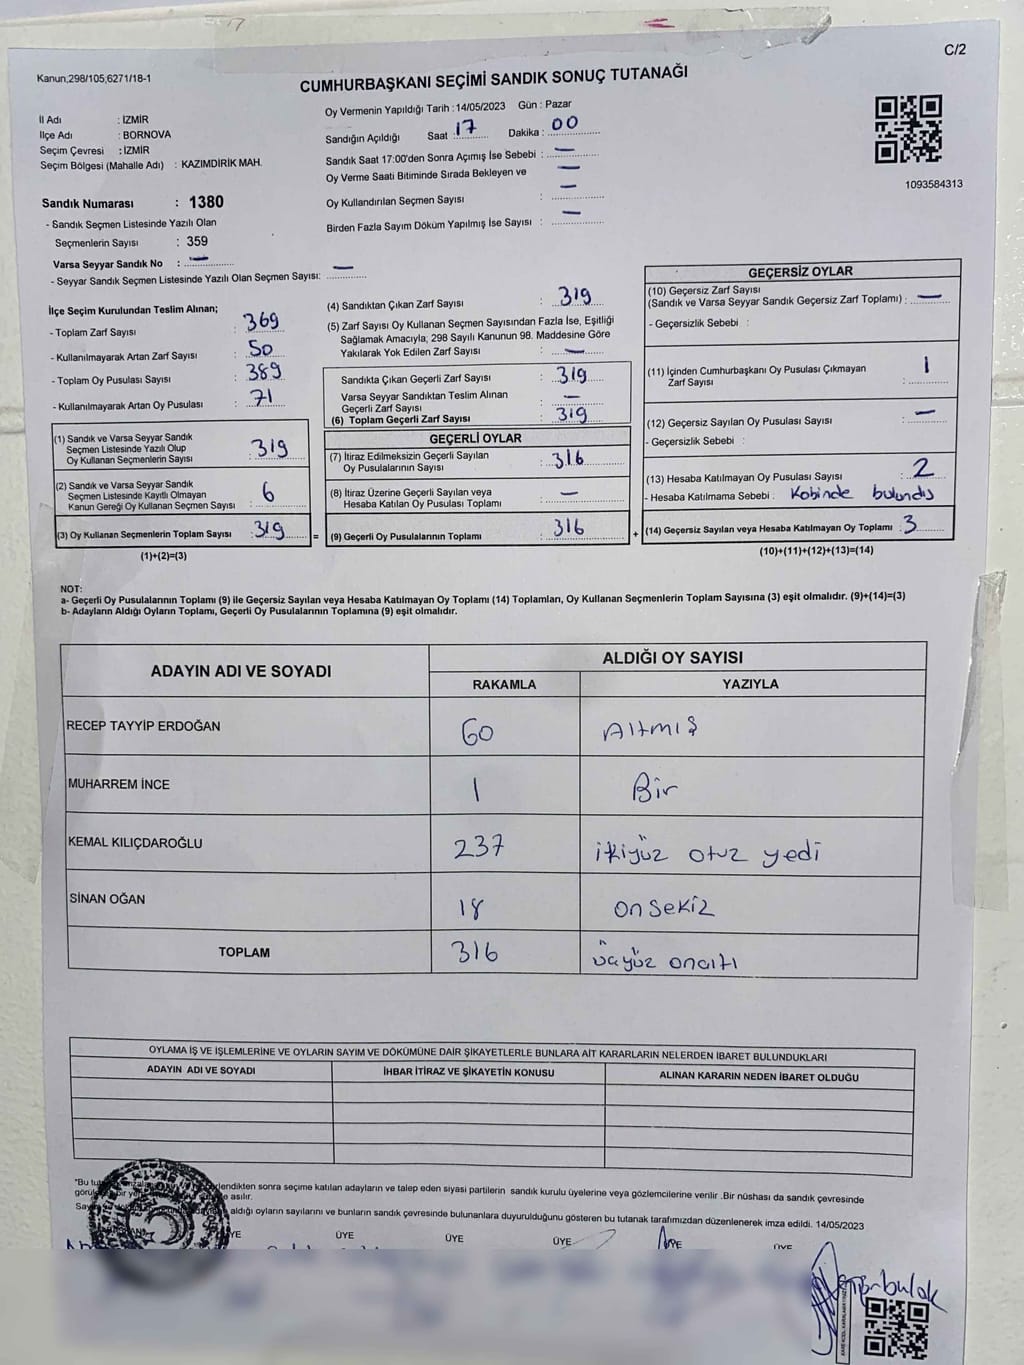 C/2
Kanun;298/105;6271/18-1
CUMHURBAŞKANI SEÇİMİ SANDIK SONUÇ TUTANAĞI
İl Adı : İZMİR
İlçe Adı : BORNOVA
Seçim Çevresi : İZMİR
Seçim Bölgesi (Mahalle Adı) : KAZIMDİRİK MAH.
Oy Vermenin Yapıldığı Tarih :14/05/2023 Gün : Pazar
Sandığın Açıldığı Saat :17 Dakika : 00
Sandık Saat 17:00'den Sonra Açımış İse Sebebi : —
Oy Verme Saati Bitiminde Sırada Bekleyen ve —
Oy Kullandırılan Seçmen Sayısı : —
Birden Fazla Sayım Döküm Yapılmış İse Sayısı : —
1093584313
Sandık Numarası : 1380
- Sandık Seçmen Listesinde Yazılı Olan
Seçmenlerin Sayısı : 359
Varsa Seyyar Sandık No : —
- Seyyar Sandık Seçmen Listesinde Yazılı Olan Seçmen Sayısı: —
İlçe Seçim Kurulundan Teslim Alınan;
- Toplam Zarf Sayısı : 369
- Kullanılmayarak Artan Zarf Sayısı : 50
- Toplam Oy Pusulası Sayısı : 389
- Kullanılmayarak Artan Oy Pusulası : 71
(1) Sandık ve Varsa Seyyar Sandık
Seçmen Listesinde Yazılı Olup
Oy Kullanan Seçmenlerin Sayısı : 319
(2) Sandık ve Varsa Seyyar Sandık
Seçmen Listesinde Kayıtlı Olmayan
Kanun Gereği Oy Kullanan Seçmen Sayısı : 6
(3) Oy Kullanan Seçmenlerin Toplam Sayısı : 319 =
(1)+(2)=(3)
(4) Sandıktan Çıkan Zarf Sayısı : 319
(5) Zarf Sayısı Oy Kullanan Seçmen Sayısından Fazla İse, Eşitliği
Sağlamak Amacıyla; 298 Sayılı Kanunun 98. Maddesine Göre
Yakılarak Yok Edilen Zarf Sayısı : —
Sandıkta Çıkan Geçerli Zarf Sayısı : 319
Varsa Seyyar Sandıktan Teslim Alınan
Geçerli Zarf Sayısı : —
(6) Toplam Geçerli Zarf Sayısı : 319
GEÇERLİ OYLAR
(7) İtiraz Edilmeksizin Geçerli Sayılan
Oy Pusulalarının Sayısı : 316
(8) İtiraz Üzerine Geçerli Sayılan veya
Hesaba Katılan Oy Pusulası Toplamı : —
(9) Geçerli Oy Pusulalarının Toplamı : 316 +
GEÇERSİZ OYLAR
(10) Geçersiz Zarf Sayısı
(Sandık ve Varsa Seyyar Sandık Geçersiz Zarf Toplamı) : —
- Geçersizlik Sebebi :
(11) İçinden Cumhurbaşkanı Oy Pusulası Çıkmayan
Zarf Sayısı : 1
(12) Geçersiz Sayılan Oy Pusulası Sayısı : —
- Geçersizlik Sebebi :
(13) Hesaba Katılmayan Oy Pusulası Sayısı : 2
- Hesaba Katılmama Sebebi : Kabinde bulundu
(14) Geçersiz Sayılan veya Hesaba Katılmayan Oy Toplamı : 3
(10)+(11)+(12)+(13)=(14)
NOT:
a- Geçerli Oy Pusulalarının Toplamı (9) ile Geçersiz Sayılan veya Hesaba Katılmayan Oy Toplamı (14) Toplamları, Oy Kullanan Seçmenlerin Toplam Sayısına (3) eşit olmalıdır. (9)+(14)=(3)
b- Adayların Aldığı Oyların Toplamı, Geçerli Oy Pusulalarının Toplamına (9) eşit olmalıdır.
ADAYIN ADI VE SOYADI ALDIĞI OY SAYISI
RAKAMLA YAZIYLA
RECEP TAYYİP ERDOĞAN 60 Altmış
MUHARREM İNCE 1 Bir
KEMAL KILIÇDAROĞLU 237 ikiyüz otuz yedi
SİNAN OĞAN 18 on sekiz
TOPLAM 316 üçyüz onaltı
OYLAMA İŞ VE İŞLEMLERİNE VE OYLARIN SAYIM VE DÖKÜMÜNE DAİR ŞİKAYETLERLE BUNLARA AİT KARARLARIN NELERDEN İBARET BULUNDUKLARI
ADAYIN ADI VE SOYADI İHBAR İTİRAZ VE ŞİKAYETİN KONUSU ALINAN KARARIN NEDEN İBARET OLDUĞU
"Bu lendikten sonra seçime katılan adayların ve talep eden siyasi partilerin sandık kurulu üyelerine veya gözlemcilerine verilir .Bir nüshası da sandık çevresinde
asılır.
aldığı oyların sayılarını ve bunların sandık çevresinde bulunanlara duyurulduğunu gösteren bu tutanak tarafımızdan düzenlenerek imza edildi. 14/05/2023
ÜYE ÜYE ÜYE ÜYE ÜYE